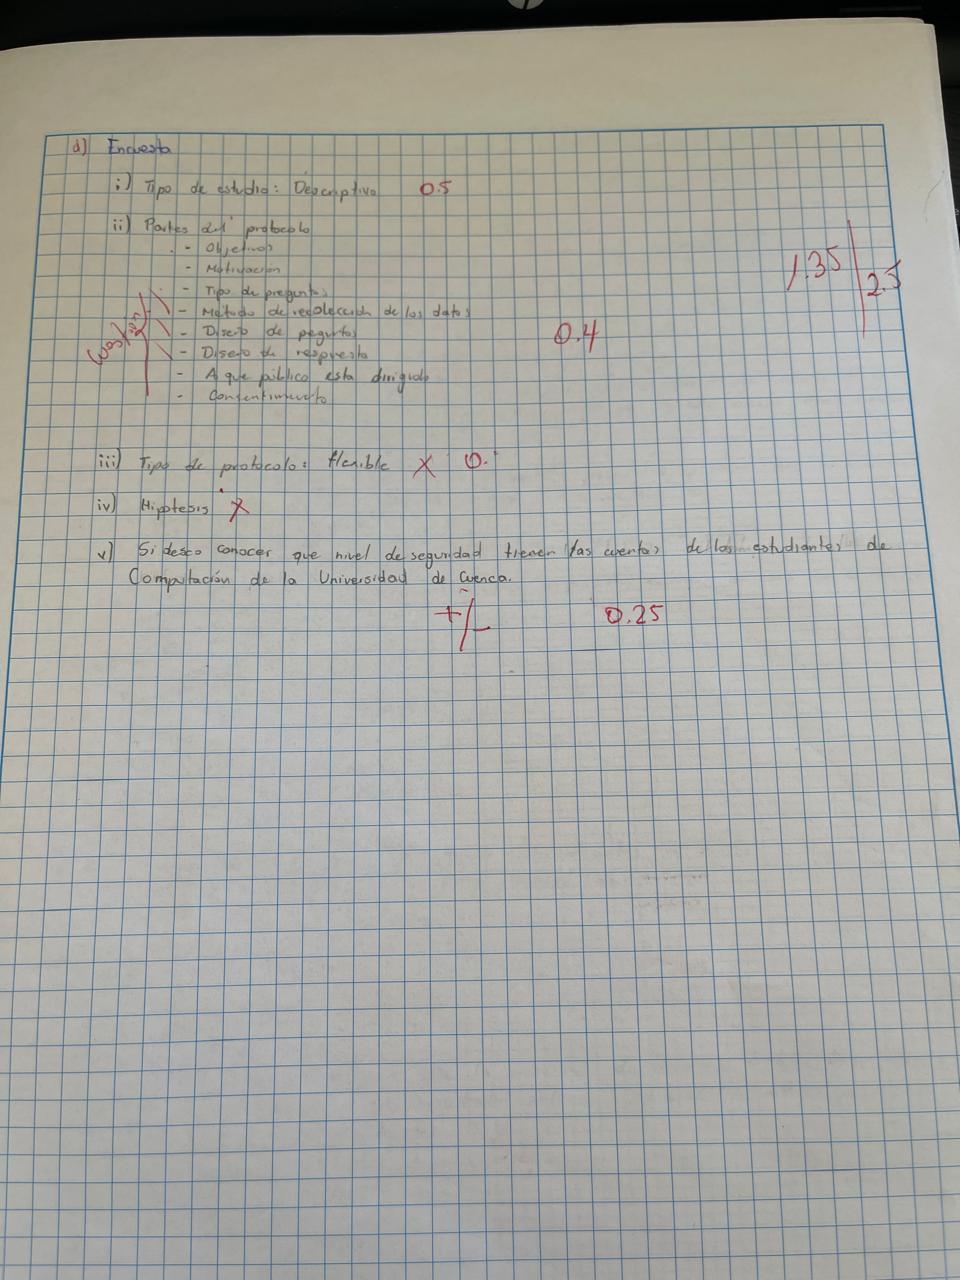 d) Encuesta
i) Tipo de estudio: Descriptivo 0.5
ii) Partes del protocolo
- Objetivos
- Motivación
- Tipo de preguntas
- Método de recolección de los datos
- Diseño de peguntas 0.4
- Diseño de respuesta
- A que público esta dirigido
- Consentimiento
1.35 / 2.5
iii) Tipo de protocolo: flexible X 0.
iv) Hipótesis X
v) Si deseo conocer que nivel de seguridad tienen las cuentas de los estudiantes de
Computación de la Universidad de Cuenca.
+/- 0.25